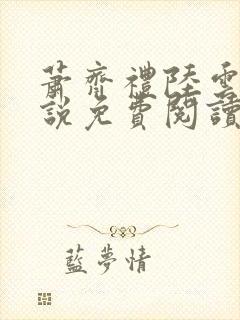 蕭齊禮陸雲
說免費閱讀
藍夢情